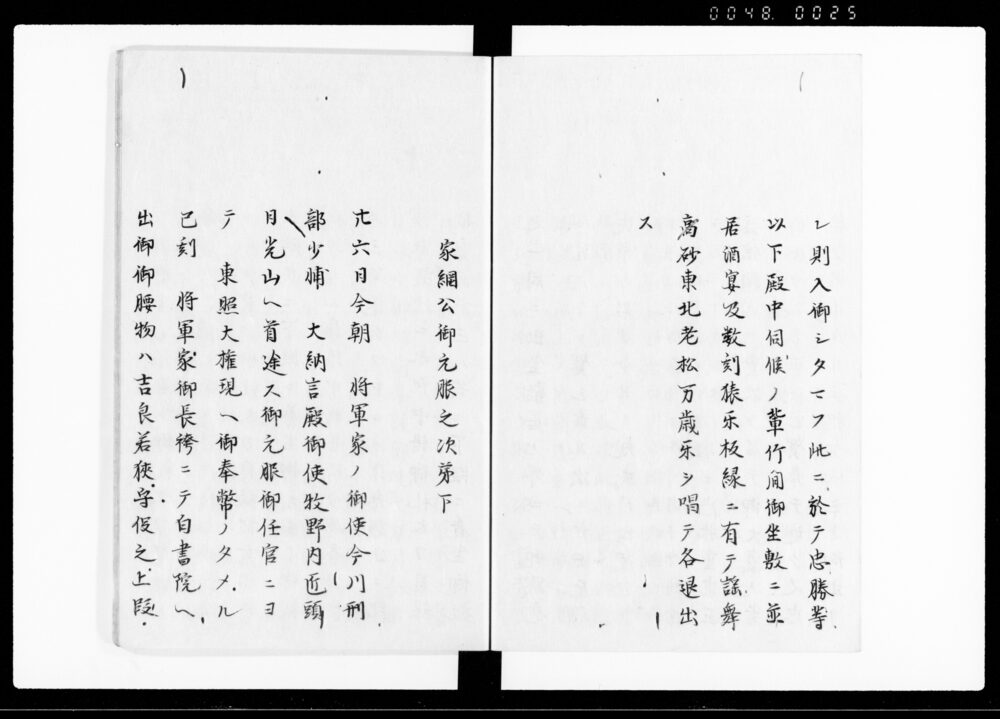 0048. 0025
レ則入御シタマフ此ニ於テ忠勝等
以下殿中伺候ノ輩竹間御坐敷ニ並
居酒宴及数刻猿乐板縁ニ有テ謡舞
高砂東北老松万歳乐ヲ唱テ各退出
ス
家綱公御元服之次第下
廿六日今朝 将軍家ノ御使今川刑
部少輔 大納言殿御使牧野内匠頭
日光山ヘ首途ス御元服御任官ニヨ
テ 東照大権現ヘ御奉幣ノタメル
巳刻 将軍家御長袴ニテ白書院ヘ
出御御腰物ハ吉良若狭守役之上段